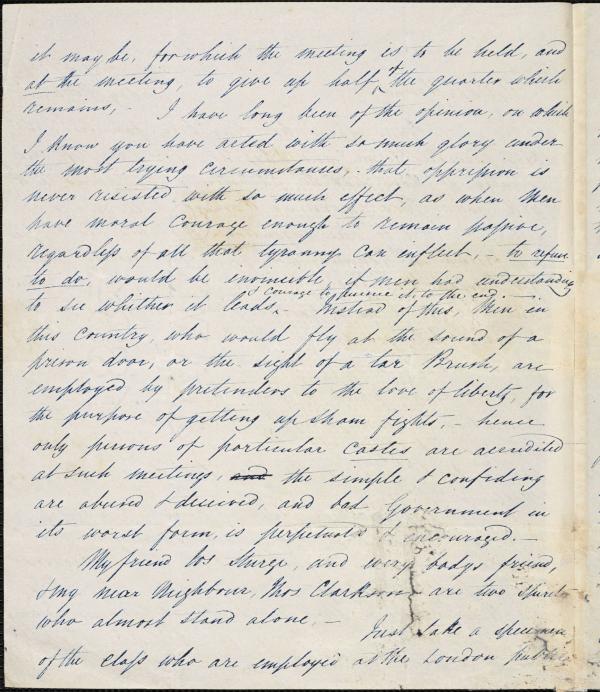 it may be, for which the meeting is to be held, and
at the meeting, to give up half, & the quarter which
remains, - I have long been of the opinion, on which
I know you have acted with so much glory under
the most trying circumstances, - that oppression is
never resisted with so much effect, as when Men
have moral courage enough to remain passive,
regardless of all that tyranny can inflect, - to refuse
to do, would be invincible, if men had understanding
& courage to pursue it, to the end. -
to see whither it leads, - Instead of this, Men in
this Country, who would fly at the sound of a
prison door, or the sight of a tar Brush, are
employed by pretenders to the love of liberty, for
the purpose of getting up sham fights, - hence
only persons of particular castes are accredited
at such meetings, and the simple & confiding
are abused & deceived, and bad Government in
its worst form, is perpetuated & encouraged. -
My friend Jos Sturge, and every bodys friend,
& my near Neighbour, Thos Clarkson are two Spirits
who almost stand alone. - Just take a specimen
of the class who are employed at the London Public